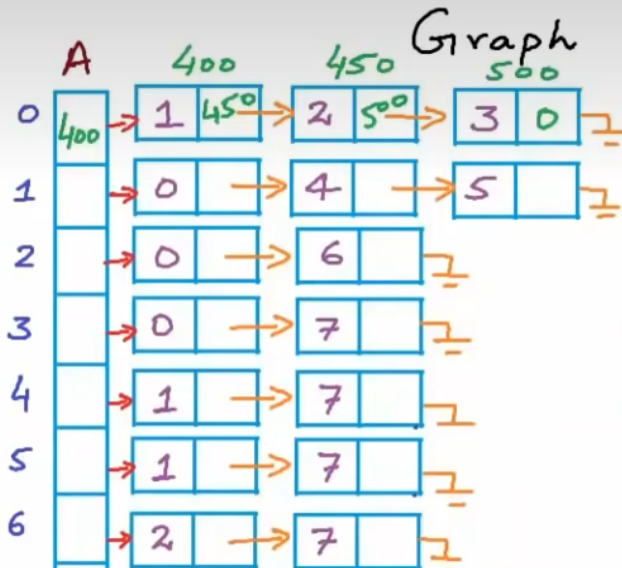 Graph
A 400 450 500
0 400 1 450 2 500 3 0
1 0 4 5
2 0 6
3 0 7
4 1 7
5 1 7
6 2 7